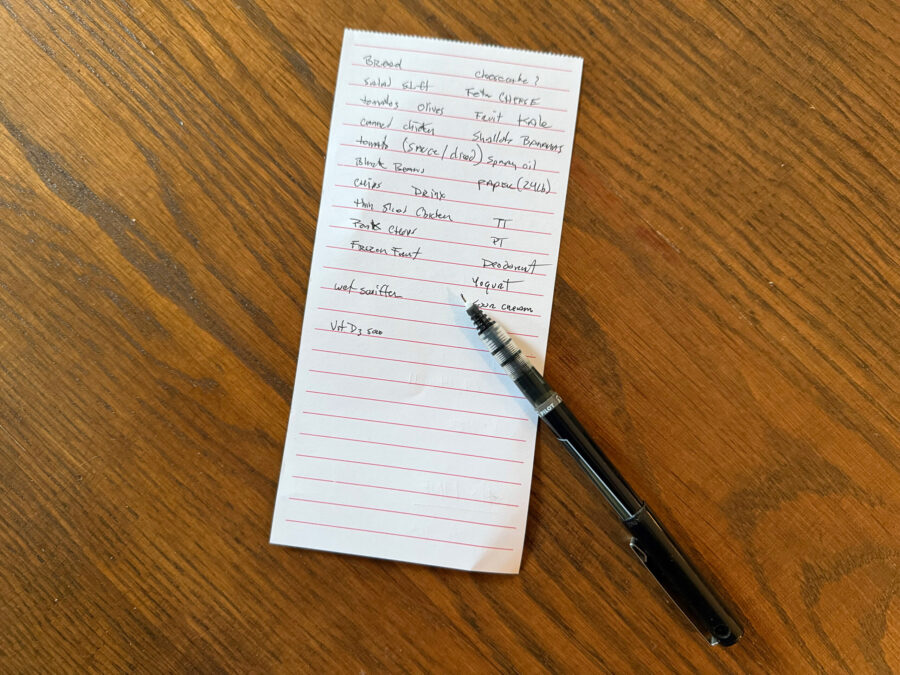 Bread
cheesecake?
salad stuff
Feta CHEESE
tomatos olives
Fruit KALE
canned chicken
Shallots BANANAS
tomato (sauce/diced)
spray oil
Black Beans
PAPER (24lb)
Chips Drinx
thin sliced Chicken
TT
Pork Chops
PT
Frozen Fruit
Deodorant
Yogurt
wet swiffer
sour cream
Vit D3 5000
PILOT